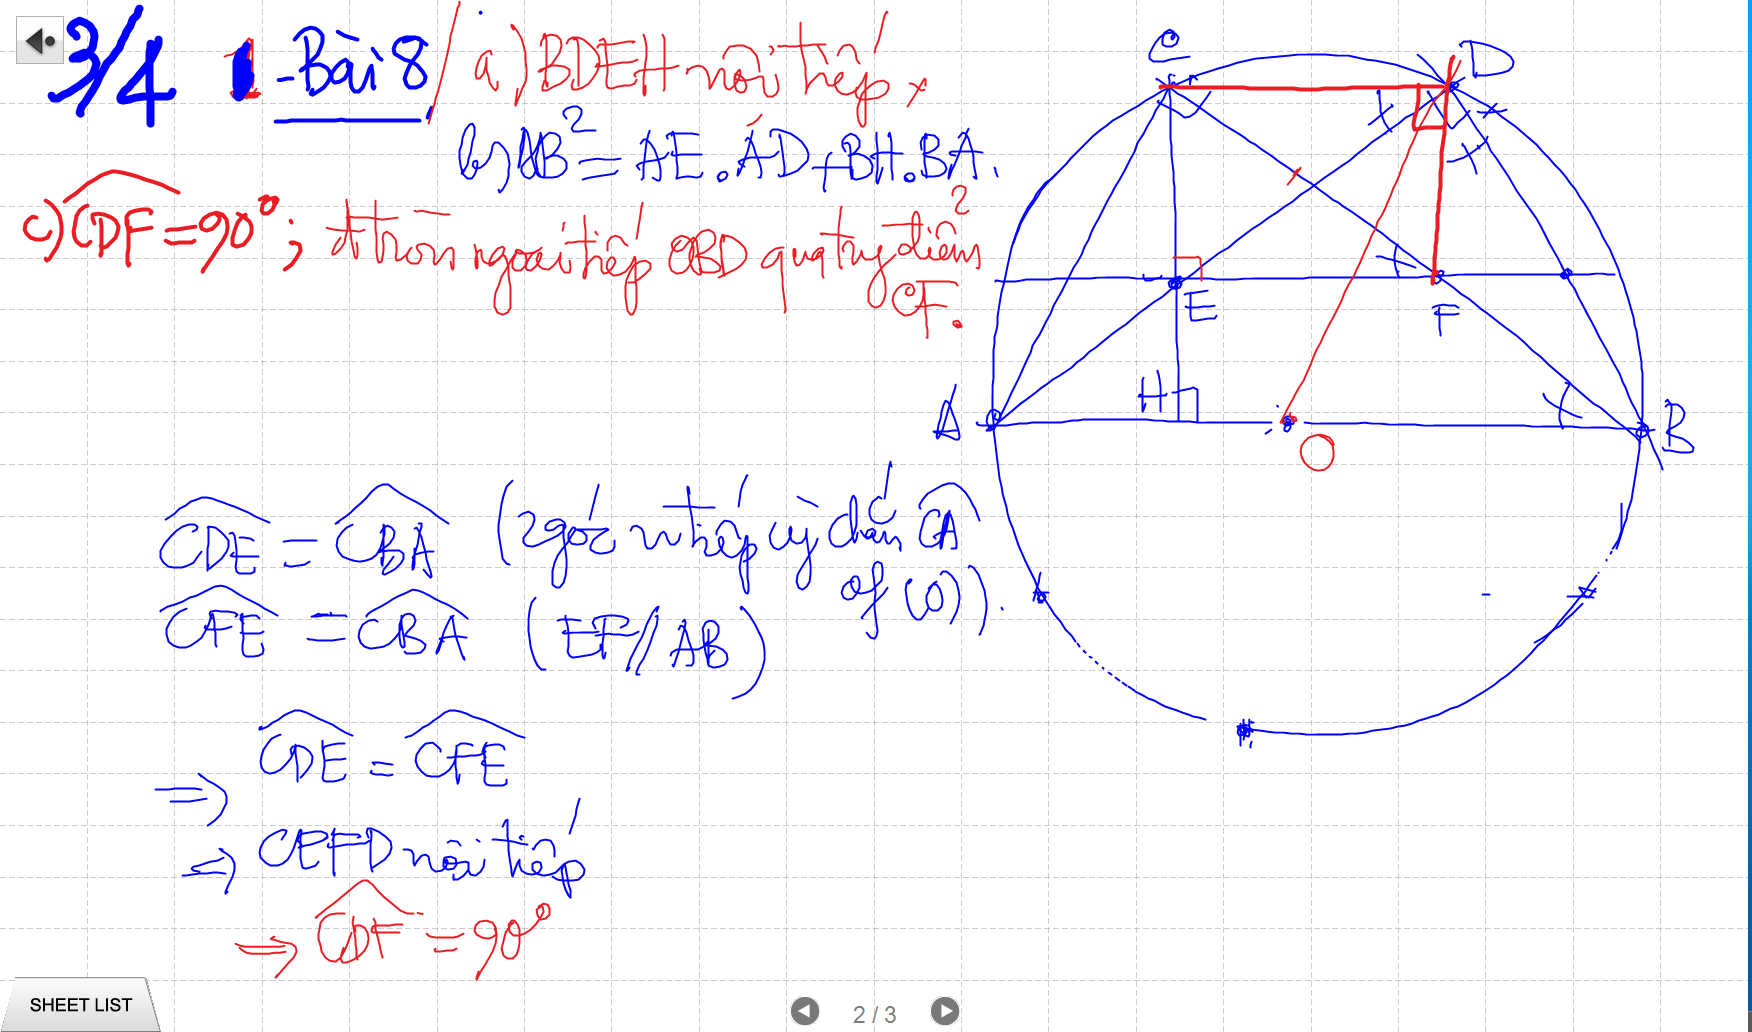 3/4 1 - Bài 8 / a) BDEH nội tiếp,
b) AB² = AE.AD + BH.BA.
c) CDF = 90°; đtròn ngoại tiếp OBD qua trung điểm
CF.
C
D
E
F
A
H
O
B
CDE = CBA (2 góc n tiếp cg chắn CA
of (O)).
CFE = CBA (EF // AB)
⇒ CDE = CFE
⇒ CEFD nội tiếp
⇒ CDF = 90°
SHEET LIST
2 / 3